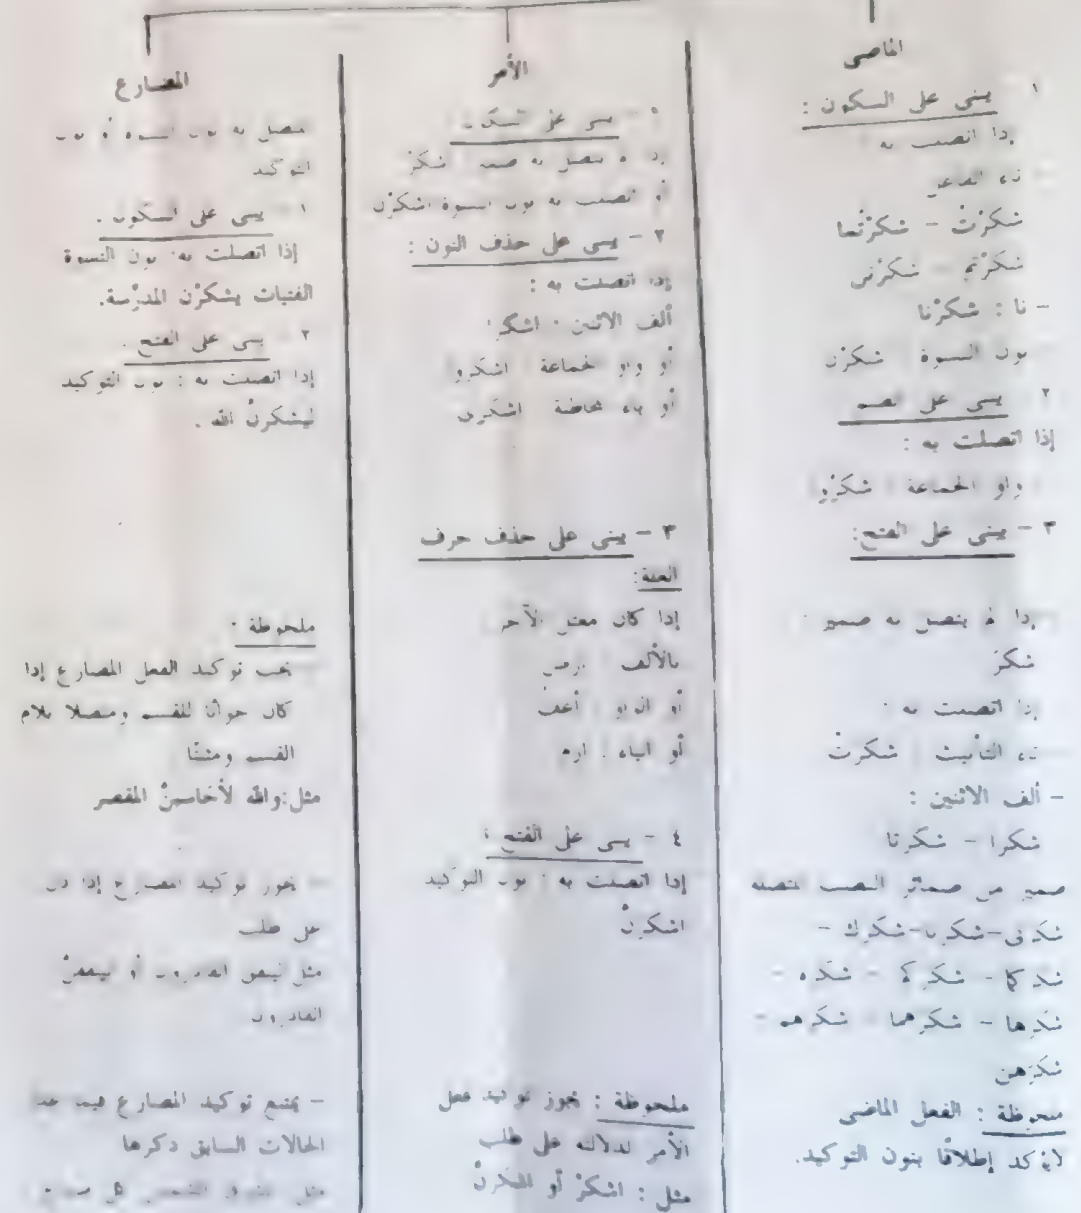 الماضى
١ - يبنى على السكون :
إذا اتصلت به :
- تاء الفاعل
شكرْتُ - شكرْتُما
شكرْتم - شكرْتنى
- نا : شكرْنا
نون النسوة : شكرْن
٢ - يبنى على الضم
إذا اتصلت به :
واو الجماعة : شكرُوا
٣ - يبنى على الفتح:
إذا لم يتصل به ضمير :
شكرَ
إذا اتصلت به :
تاء التأنيث : شكرتْ
- ألف الاثنين :
شكرا - شكرتا
ضمير من ضمائر النصب المتصلة
شكرنى-شكرنا-شكرك -
شكركما - شكركم - شكره -
شكرها - شكرهما - شكرهم -
شكرهن
ملحوظة : الفعل الماضى
لايؤكد إطلاقًا بنون التوكيد.
الأمر
١ - يبنى على السكون
إذا لم يتصل به ضمير : اشكرْ
أو اتصلت به نون النسوة اشكرْن
٢ - يبنى على حذف النون :
إذا اتصلت به :
ألف الاثنين : اشكرا
أو واو الجماعة : اشكروا
أو ياء مخاطبة : اشكرى
٣ - يبنى على حذف حرف
العلة:
إذا كان معتل الآخر
بالألف : ارض
أو الواو : أعف
أو الياء : ارم
٤ - يبنى على الفتح :
إذا اتصلت به : نون التوكيد
اشكرنْ
ملحوظة : يجوز توكيد فعل
الأمر لدلالته على طلب
مثل : اشكرْ أو اشكرنْ
المضارع
المتصل به نون النسوة أو نون
التوكيد
١ - يبنى على السكون .
إذا اتصلت به: نون النسوة
الفتيات يشكرْن المدرِّسة.
٢ - يبنى على الفتح .
إذا اتصلت به : نون التوكيد
ليشكرنْ الله .
ملحوظة :
- يجب توكيد الفعل المضارع إذا
كان جوابًا للقسم ومتصلا بلام
القسم ومثبتًا
مثل:والله لأحاسبنْ المقصر
- يجوز توكيد المضارع إذا دل
على طلب
مثل
القادرون
- يمتنع توكيد المضارع فيما عدا
الحالات السابق ذكرها
مثل : تشرق الشمس كل صباح